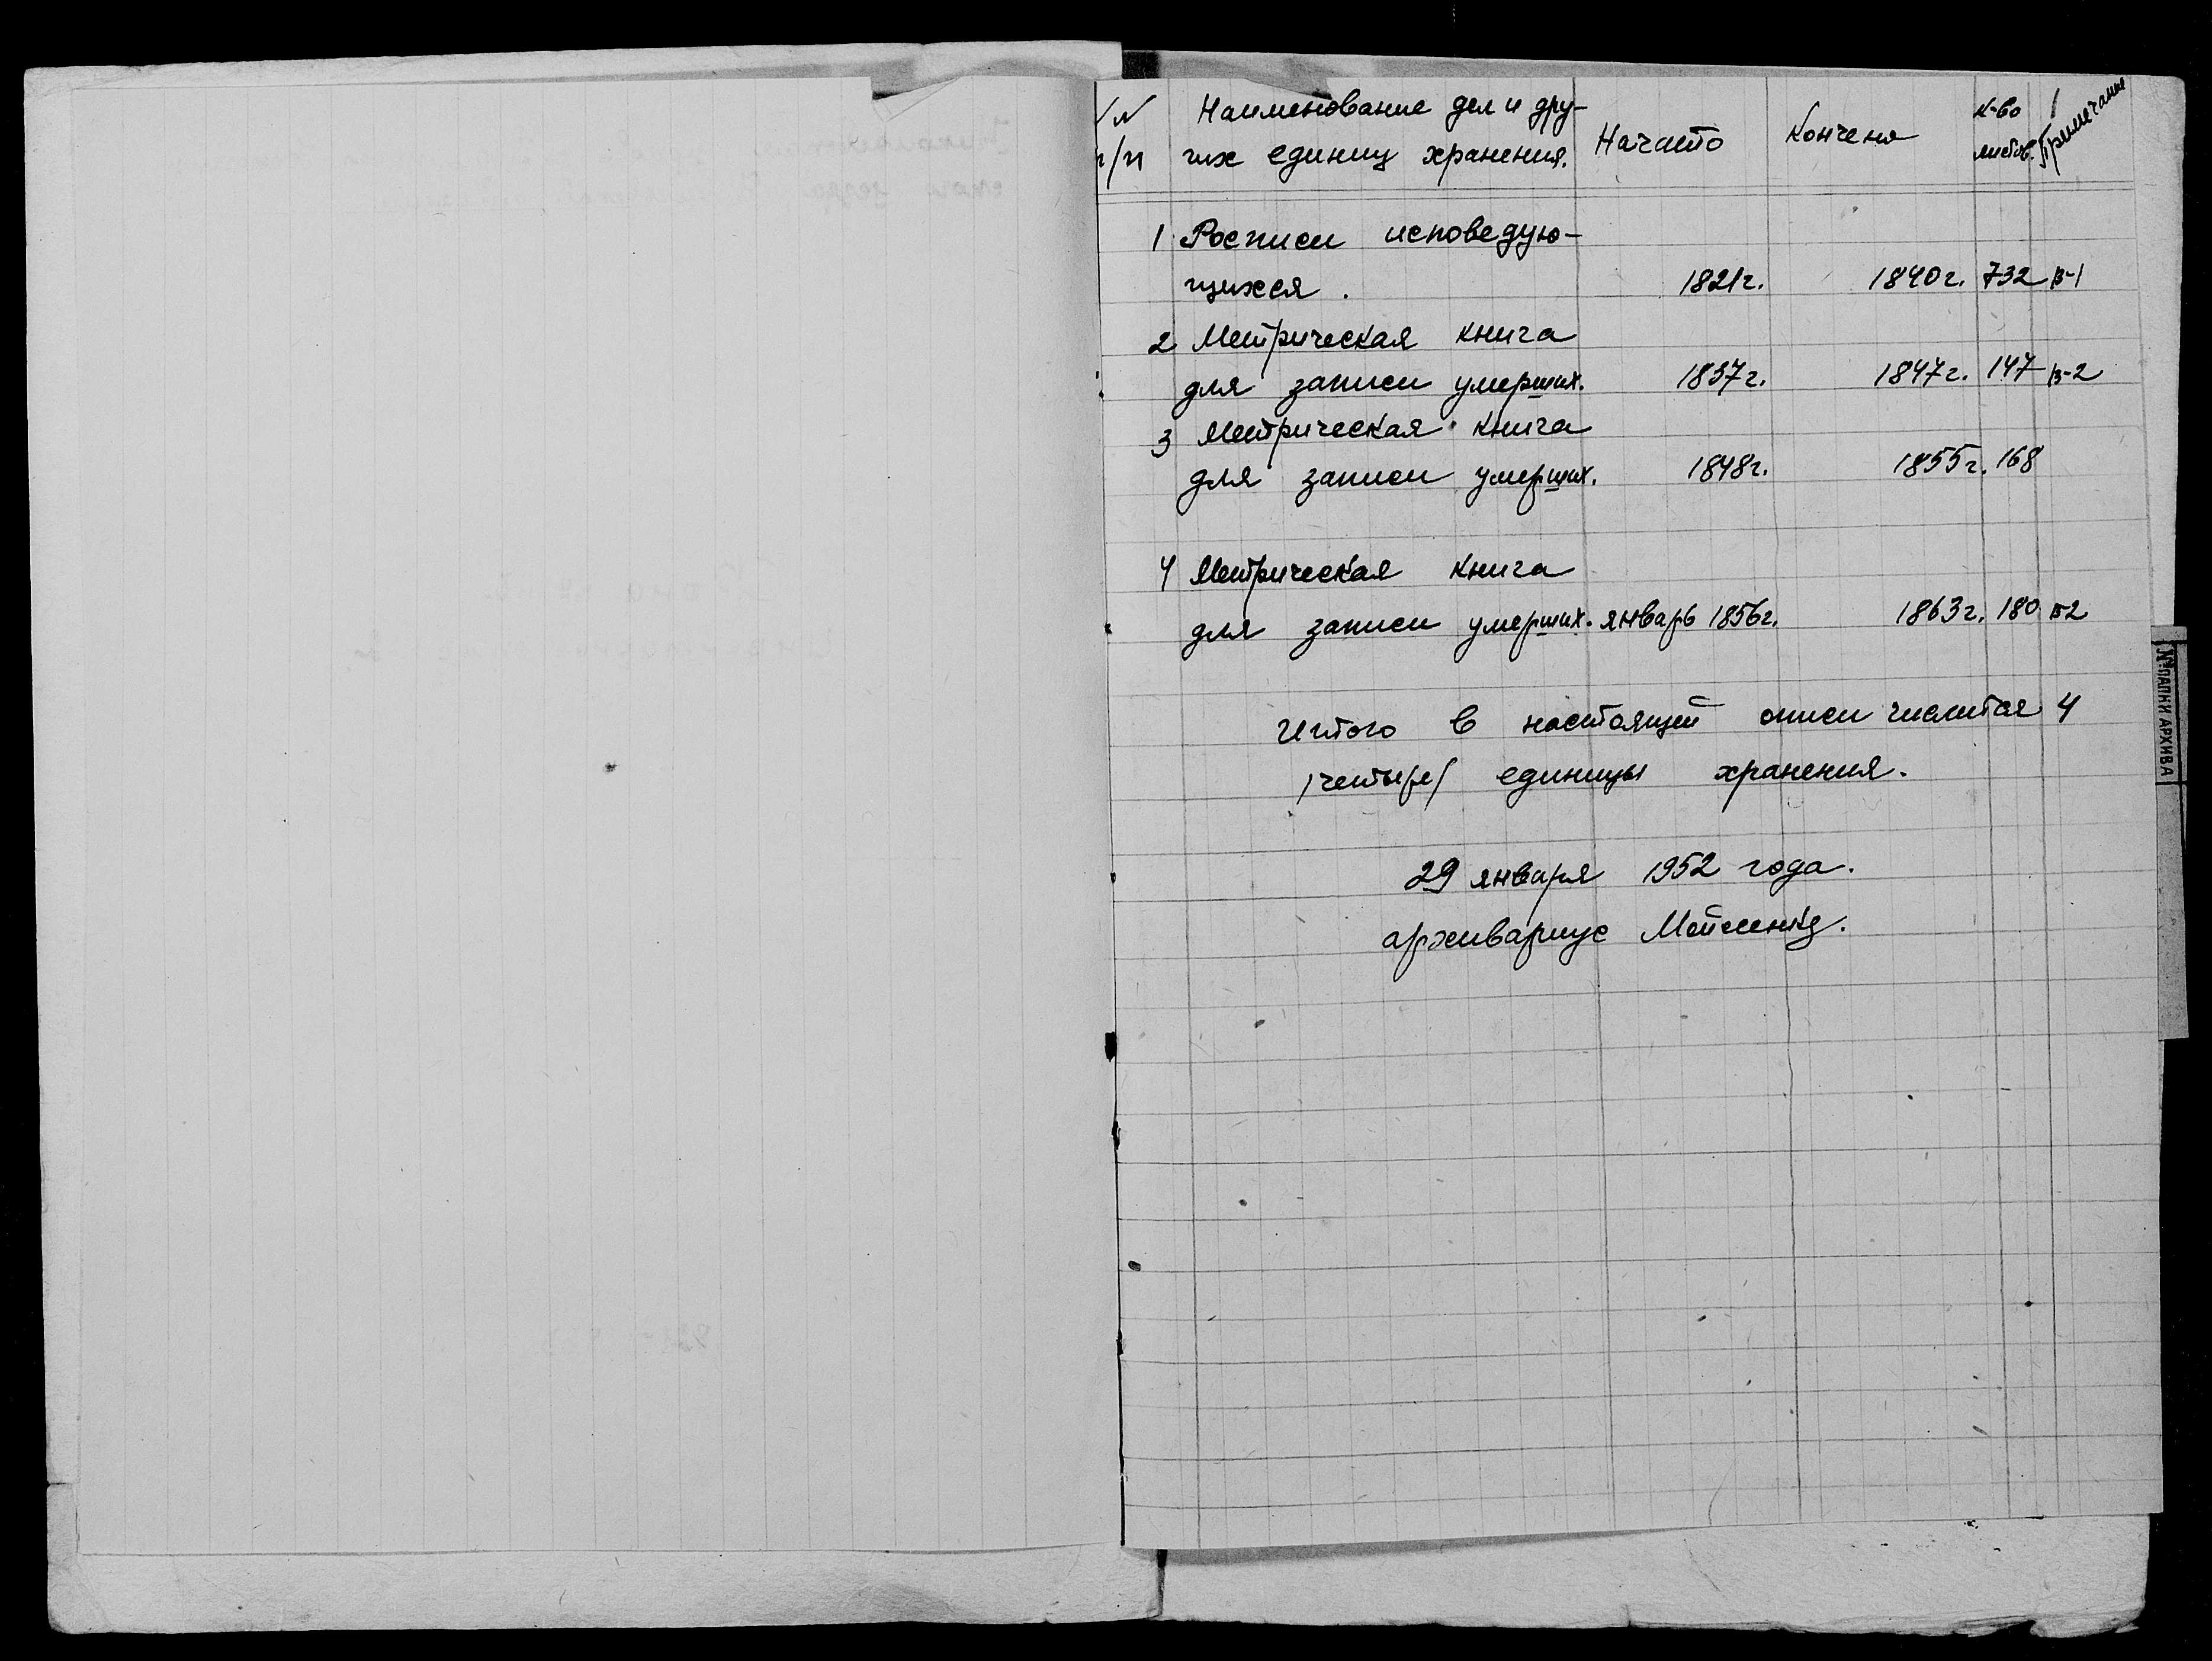 №№ Наименование дел и дру-
п/п гих единиц хранения. Начато Кончено К-во листов. Примечание
1 Росписи исповедую-
щихся. 1821г. 1840г. 732 В-1
2 Метрическая книга
для записи умерших. 1837г. 1847г. 147 В-2
3 Метрическая книга
для записи умерших. 1848г. 1855г. 168
4 Метрическая книга
для записи умерших. январь 1856г. 1863г. 180 В2
Итого в настоящей описи числится 4
/четыре/ единицы хранения.
29 января 1952 года.
архивариус
№ ПАПКИ АРХИВА